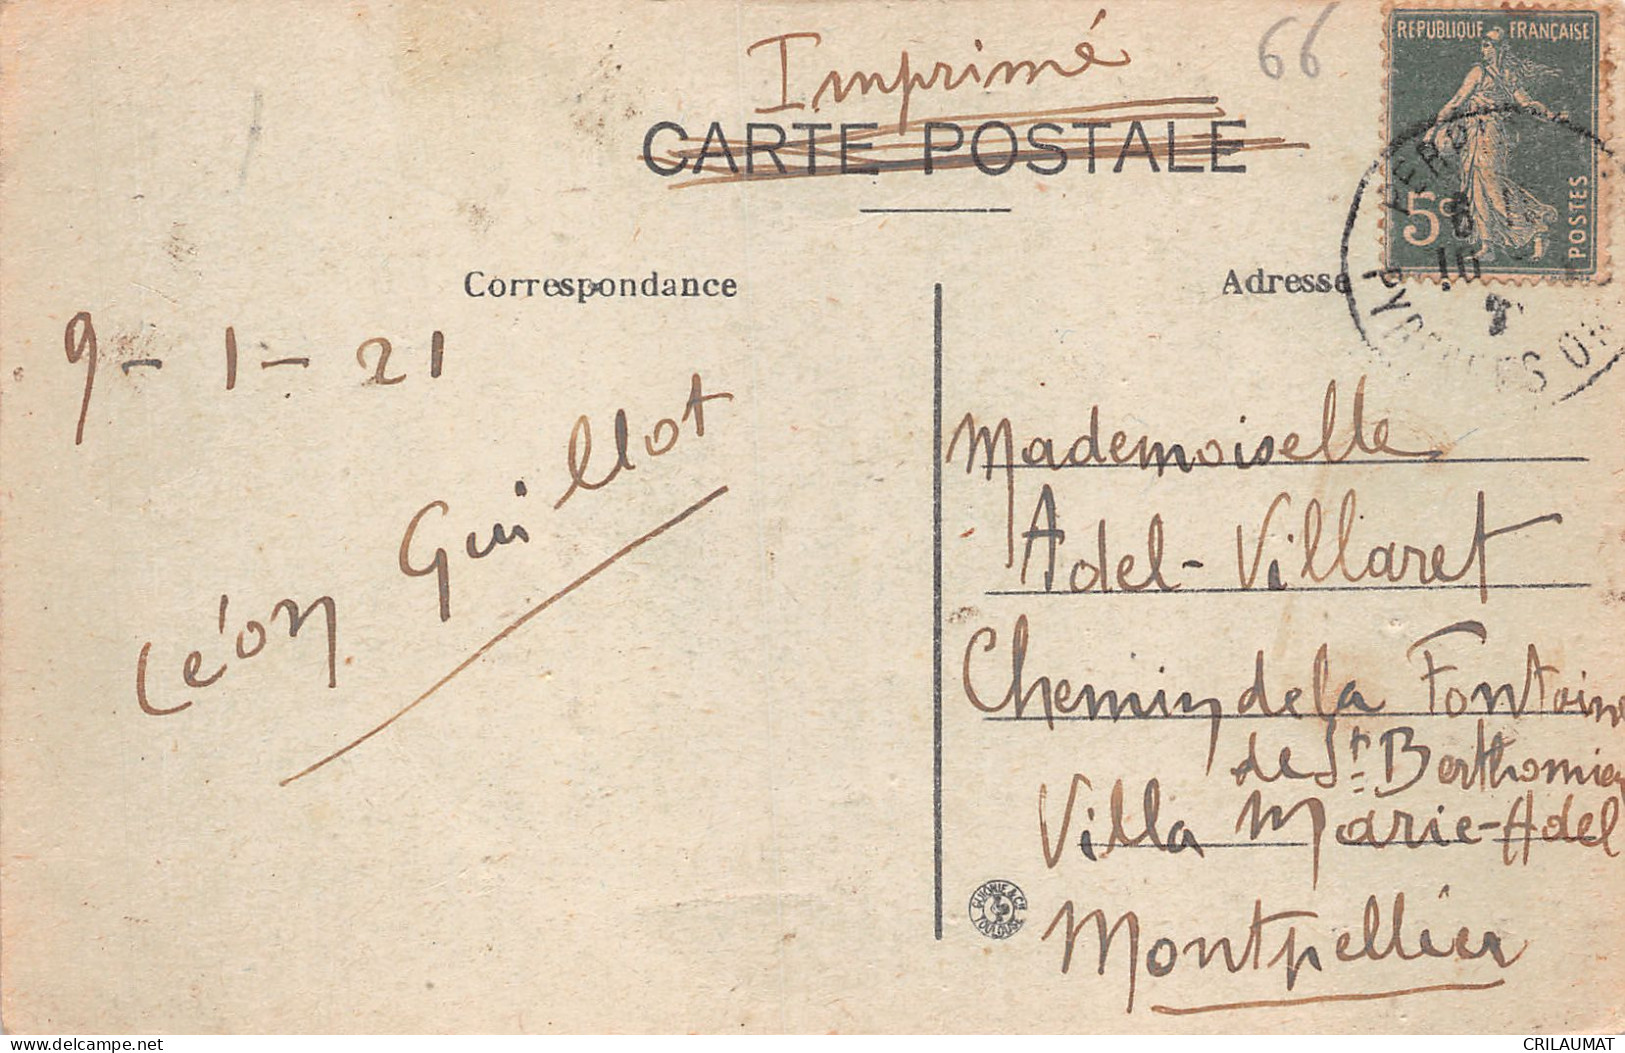 Imprimé
66
CARTE POSTALE
REPUBLIQUE FRANÇAISE
5c
POSTES
Correspondance
Adresse
9-1-21
Léon Guillot
Mademoiselle
Adel-Villaret
Chemin de la Fontaine
de St. Berthomieu
Villa Marie-Adel
Montpellier
& Cie
TOULOUSE
delcampe.net
CRILAUMAT